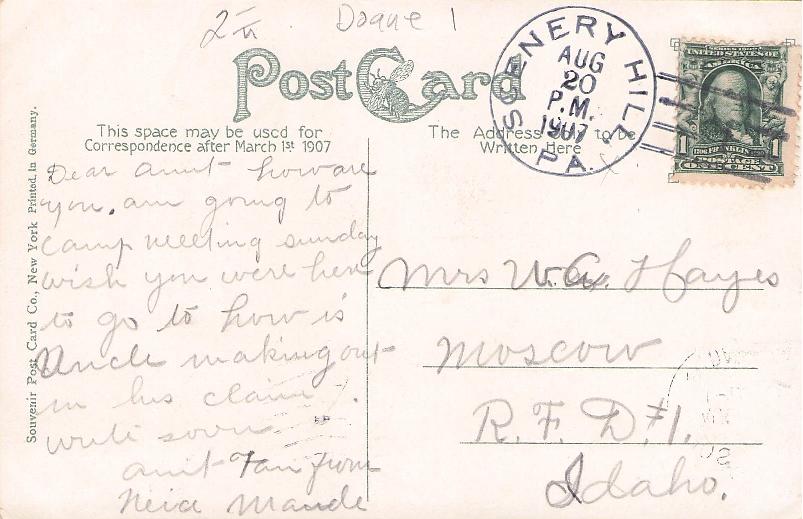 Post Card
SCENERY HILL
AUG
20
P.M.
1907
PA.
SERIES 1902
UNITED STATES OF
AMERICA
1 FRANKLIN 1
POSTAGE
ONE CENT
This space may be used for
Correspondence after March 1st 1907
The Address to be
Written Here
Souvenir Post Card Co., New York Printed in Germany.
Dear aunt how are
you. am going to
camp meeting sunday
wish you were here
to go to how is
Uncle making out
in his claim.
write soon
aunt Fan from
Neice Maude
Mrs W.A. Hayes
Moscow
R. F. D. #1.
Idaho.